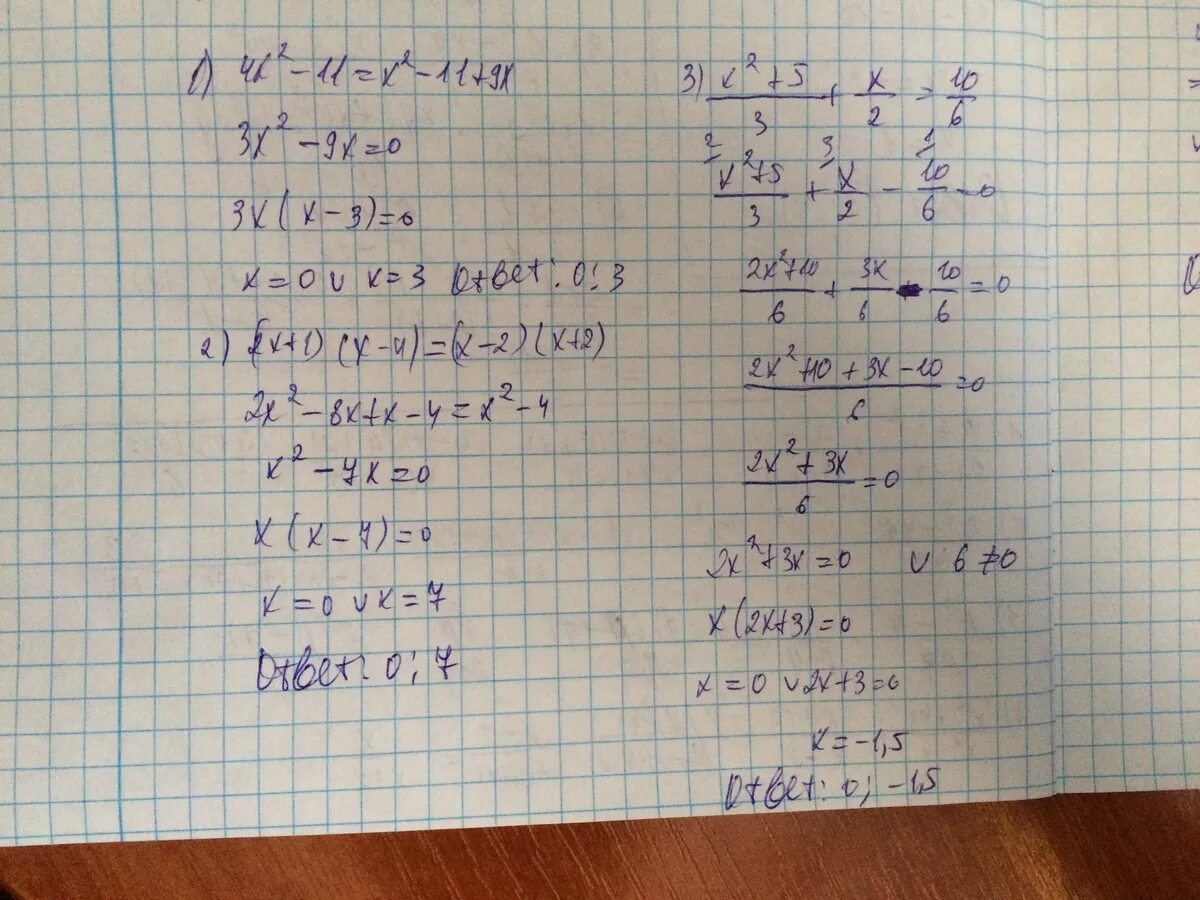 1) 4x² - 11 = x² - 11 + 9x
3x² - 9x = 0
3x(x - 3) = 0
x = 0 ∪ x = 3 Ответ: 0; 3
2) (2x+1) (x-4) = (x-2) (x+2)
2x² - 8x + x - 4 = x² - 4
x² - 7x = 0
x (x - 7) = 0
x = 0 ∪ x = 7
Ответ: 0; 7
3) (x² + 5)/3 + x/2 = 10/6
2 3 1
(x² + 5)/3 + x/2 - 10/6 = 0
(2x² + 10)/6 + 3x/6 - 10/6 = 0
(2x² + 10 + 3x - 10)/6 = 0
(2x² + 3x)/6 = 0
2x² + 3x = 0 ∪ 6 ≠ 0
x(2x+3) = 0
x = 0 ∪ 2x + 3 = 0
x = -1,5
Ответ: 0; -1,5